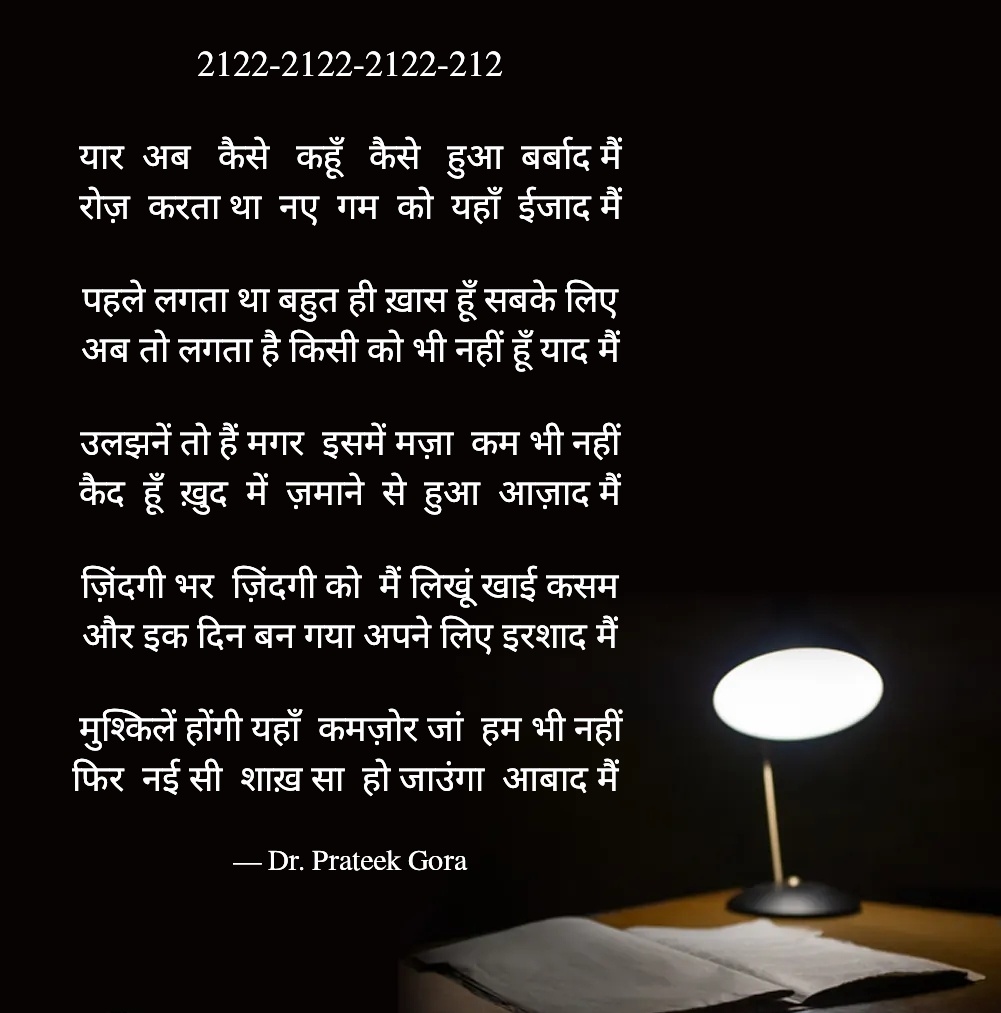 2122-2122-2122-212
यार अब कैसे कहूँ कैसे हुआ बर्बाद मैं
रोज़ करता था नए गम को यहाँ ईजाद मैं
पहले लगता था बहुत ही ख़ास हूँ सबके लिए
अब तो लगता है किसी को भी नहीं हूँ याद मैं
उलझनें तो हैं मगर इसमें मज़ा कम भी नहीं
कैद हूँ ख़ुद में ज़माने से हुआ आज़ाद मैं
ज़िंदगी भर ज़िंदगी को मैं लिखूं खाई कसम
और इक दिन बन गया अपने लिए इरशाद मैं
मुश्किलें होंगी यहाँ कमज़ोर जां हम भी नहीं
फिर नई सी शाख़ सा हो जाउंगा आबाद मैं
— Dr. Prateek Gora